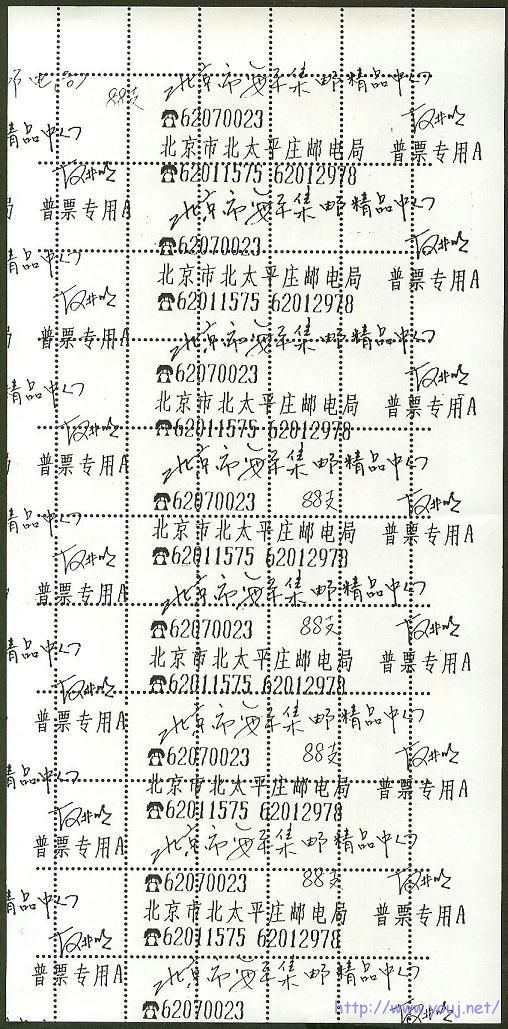 北京市 集邮精品中心
88支
☎62070023
精品中心
北京市北太平庄邮电局 普票专用A
☎62011575 62012978
普票专用A 北京市 集邮精品中心
☎62070023
精品中心
北京市北太平庄邮电局 普票专用A
☎62011575 62012978
普票专用A 北京市 集邮精品中心
☎62070023
精品中心
北京市北太平庄邮电局 普票专用A
☎62011575 62012978
普票专用A 北京市 集邮精品中心
☎62070023 88支
精品中心
北京市北太平庄邮电局 普票专用A
☎62011575 62012978
普票专用A 北京市 集邮精品中心
☎62070023 88支
精品中心
北京市北太平庄邮电局 普票专用A
☎62011575 62012978
普票专用A 北京市 集邮精品中心
☎62070023 88支
精品中心
北京市北太平庄邮电局 普票专用A
☎62011575 62012978
普票专用A 北京市 集邮精品中心
☎62070023 88支
精品中心
北京市北太平庄邮电局 普票专用A
☎62011575 62012978
普票专用A 北京市 集邮精品中心
☎62070023
http://www.youj.net/